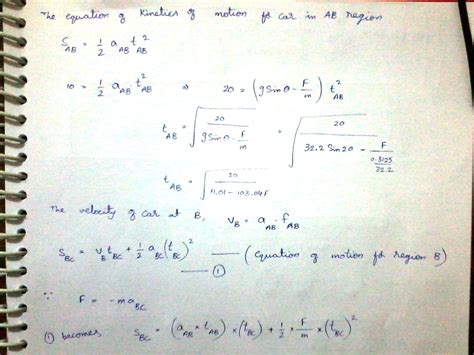 The equation of Kinetics of motion for car in AB region
S_AB = 1/2 a_AB t_AB^2
10 = 1/2 a_AB t_AB^2 ⇒ 20 = (g Sin θ - F/m) t_AB^2
t_AB = √(20 / (g Sin θ - F/m)) = √(20 / (32.2 Sin 20 - F/(0.3125/32.2)))
t_AB = √(20 / (11.01 - 103.04F))
The velocity of car at B, V_B = a_AB . t_AB
S_BC = V_B t_BC + 1/2 a_BC (t_BC)^2 —— (Equation of motion for region B)
—— ①
∵ F = -m a_BC
① becomes S_BC = (a_AB × t_AB) × (t_BC) + 1/2 × F/m × (t_BC)^2